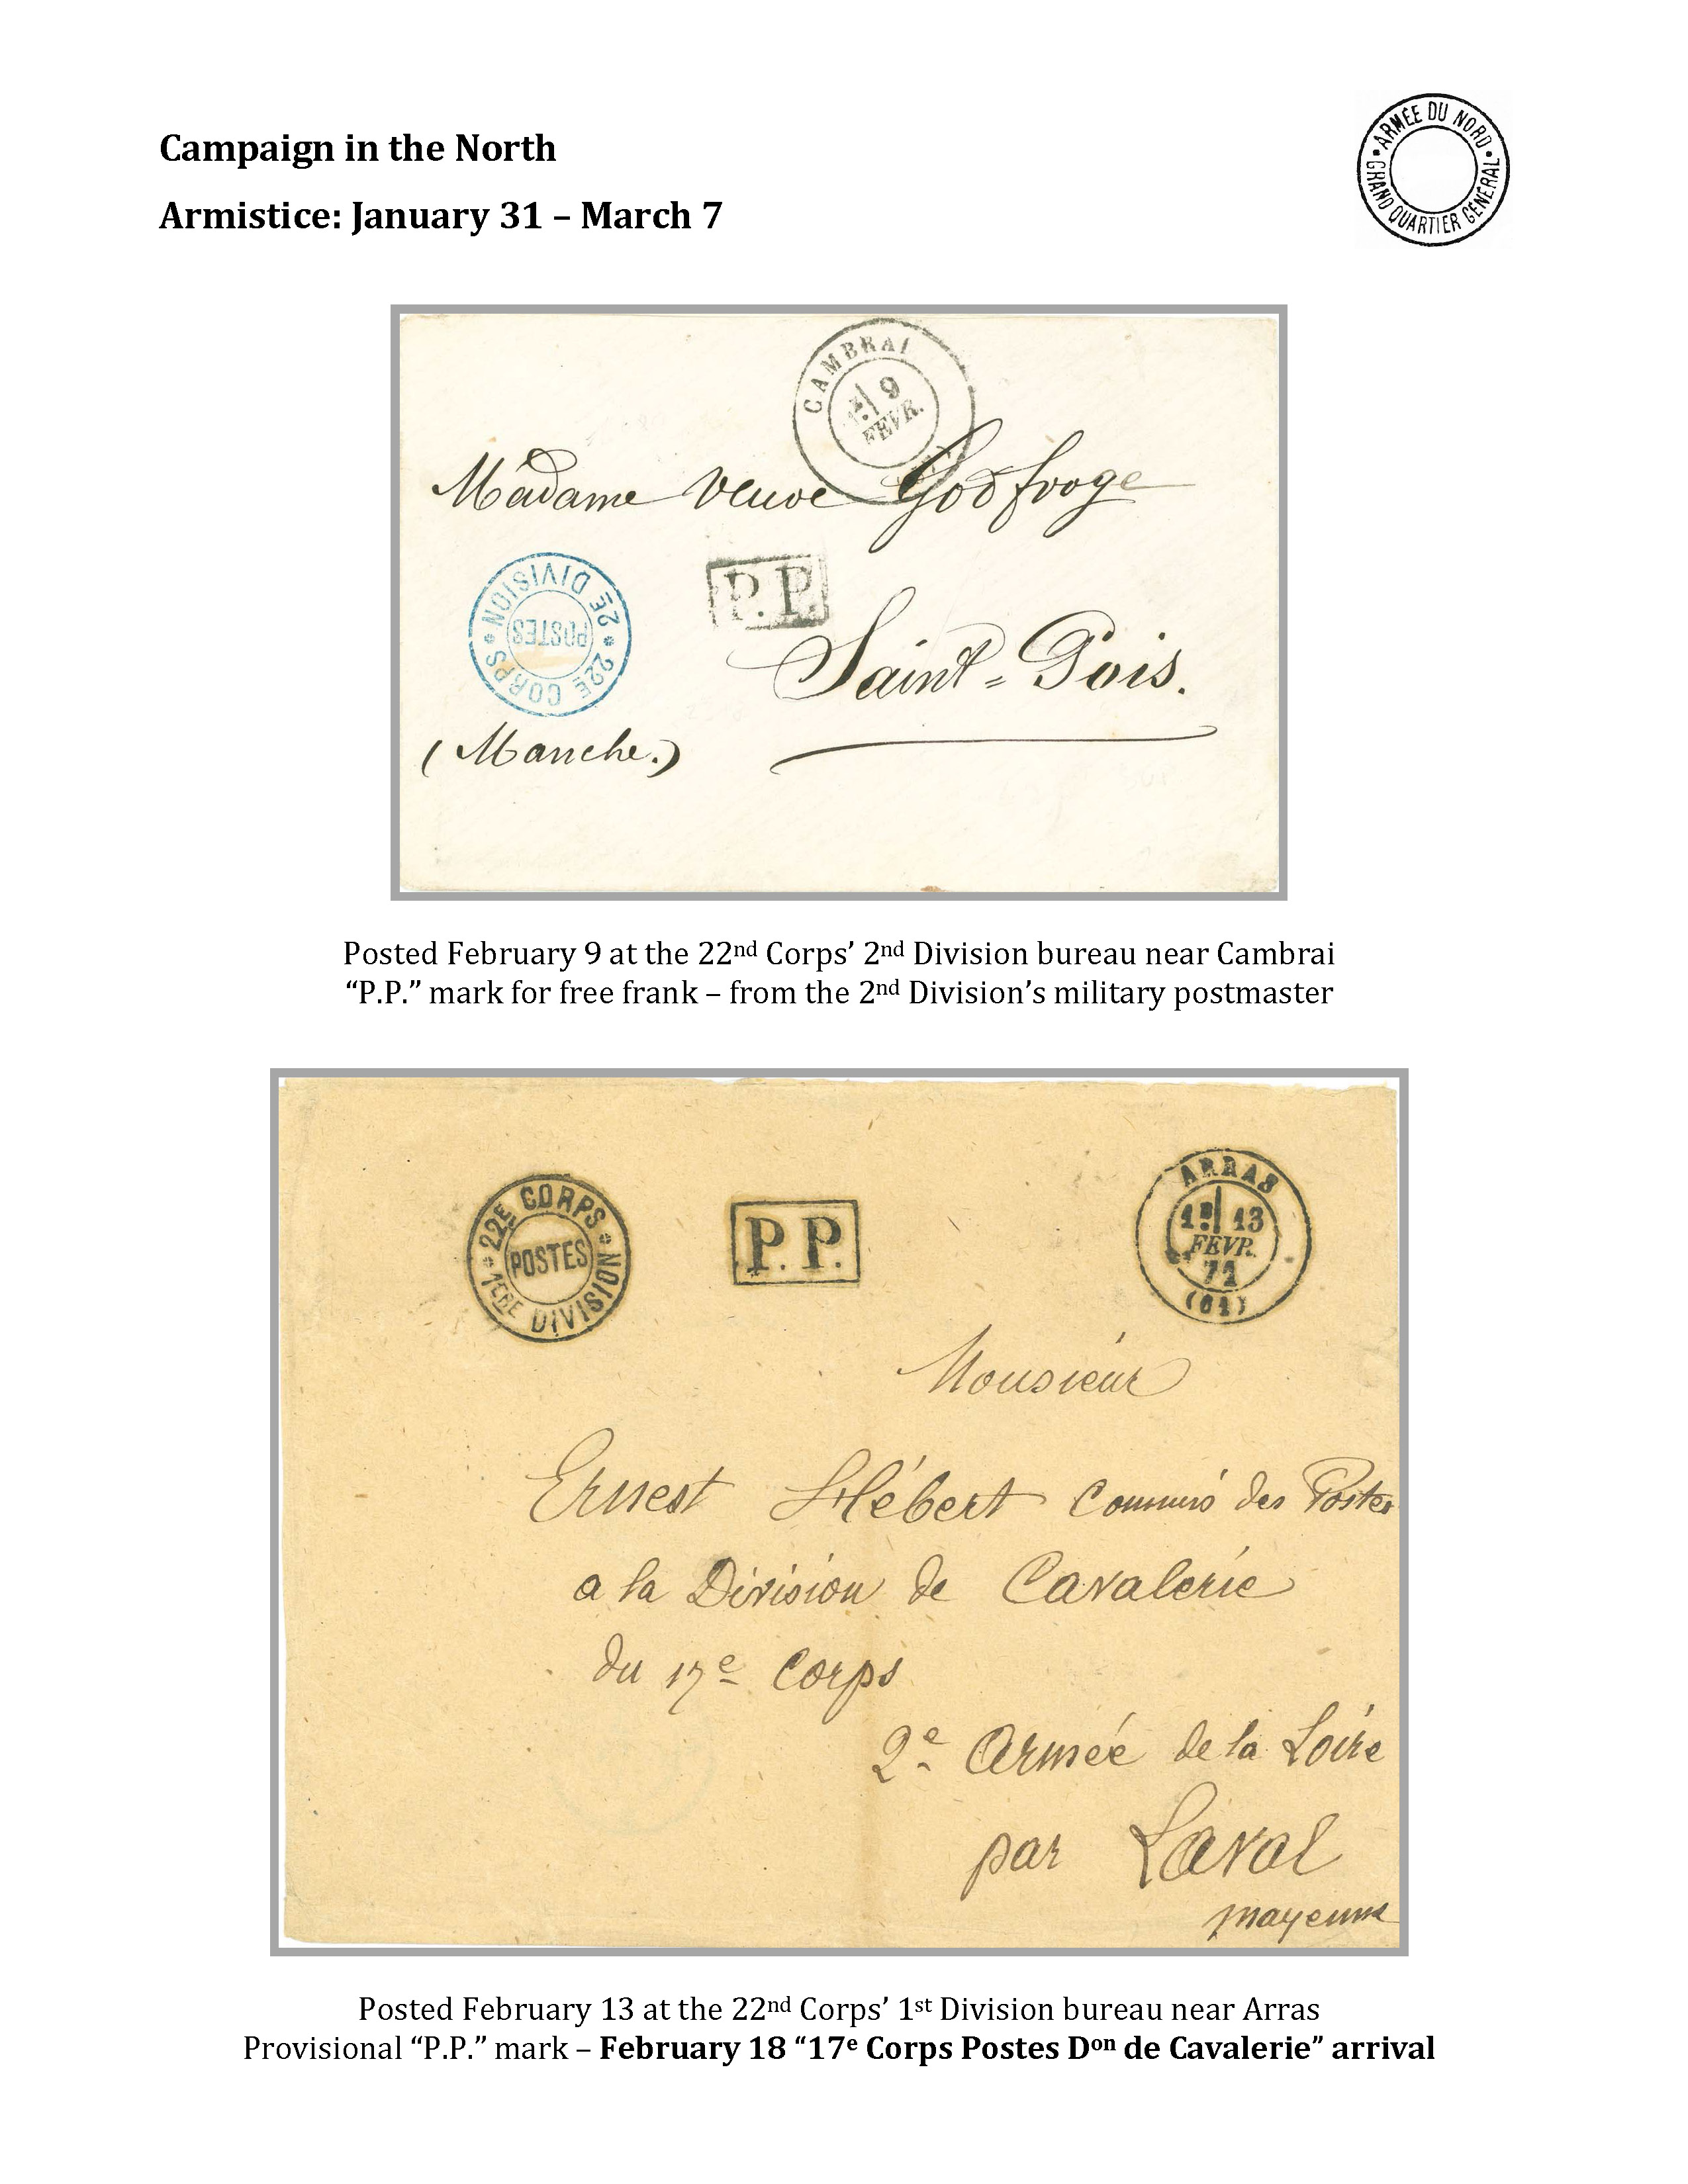 Campaign in the North
Armistice: January 31 – March 7
• ARMÉE DU NORD • GRAND QUARTIER GÉNÉRAL
CAMBRAI
9
FEVR.
Madame Veuve Godfroye
22E CORPS * 2E DIVISION *
POSTES
P.P.
Saint=Pois.
(Manche.)
Posted February 9 at the 22nd Corps’ 2nd Division bureau near Cambrai
“P.P.” mark for free frank – from the 2nd Division’s military postmaster
22E CORPS * 1ERE DIVISION *
POSTES
P.P.
ARRAS
13
FEVR.
71
(61)
Monsieur
Ernest Hébert Commis des Postes
a la Division de Cavalerie
du 17e Corps
2e Armée de la Loire
par Laval
mayenne
Posted February 13 at the 22nd Corps’ 1st Division bureau near Arras
Provisional “P.P.” mark – February 18 “17e Corps Postes Don de Cavalerie” arrival